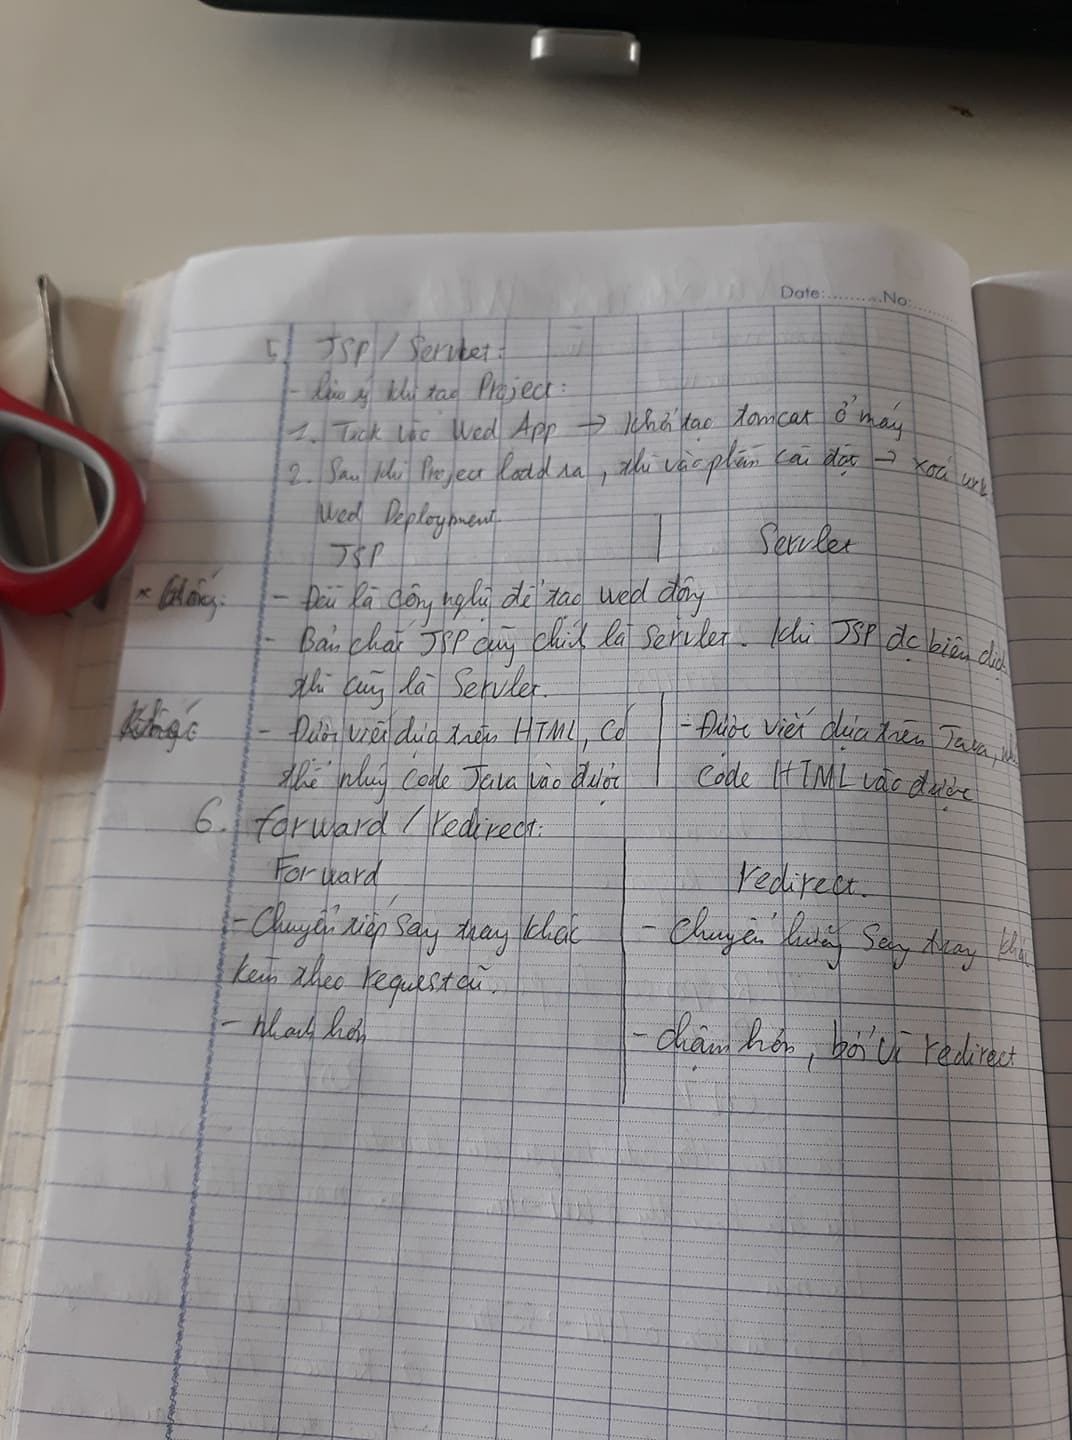 Date:.........No:........
5. JSP / Servlet:
- Lưu ý khi tạo Project:
1. Tick vào Wed App → khởi tạo tomcat ở máy
2. Sau khi Project load ra, thì vào phần cài đặt → xoá
Wed Deployment.
JSP | Servlet
* Giống: - Đều là công nghệ để tạo wed động
- Bản chất JSP cũng chính là Servlet. Khi JSP đc biên dịch
thì cũng là Servlet.
Khác - Được viết dựa trên HTML, có | - Được viết dựa trên Java,
thể nhúng code Java vào được | code HTML vào được
6. forward / redirect:
Forward | redirect.
- Chuyển tiếp sag trag khác | - Chuyển hướng sag trag khác
kèm theo request cũ.
- Nhanh hơn | - chậm hơn, bởi vì redirect